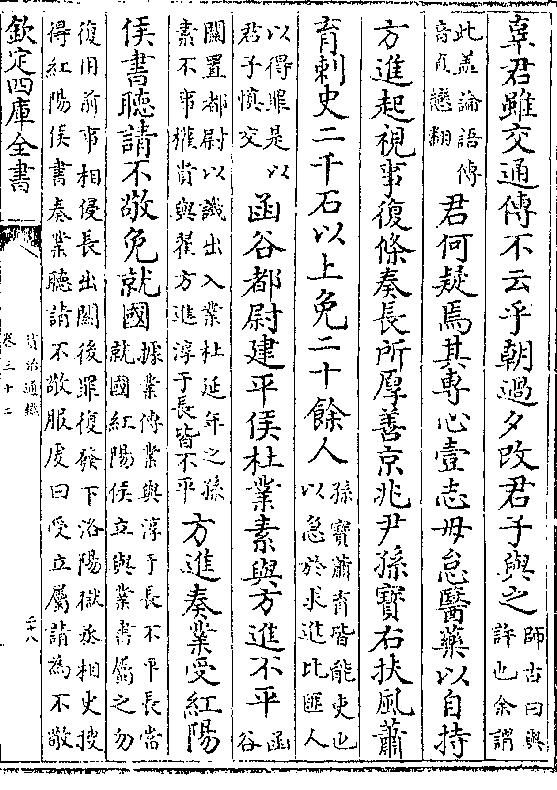 辜君雖交通傳不云乎朝過夕改君子與之師古曰與
許也余謂
此蓋論語傳
音直戀翻君何疑焉其專心壹志毋怠醫藥以自持
方進起視事復條奏長所厚善京兆尹孫寶右扶風蕭
育刺史二千石以上免二十餘人孫寶蕭育皆能吏也
以急於求進比匪人
以得罪是以
君子慎交函谷都尉建平侯杜業素與方進不平函
谷
關置都尉以譏出入業杜延年之孫
素不事權貴與翟方進淳于長皆不平方進奏業受紅陽
侯書聽請不敬免就國據業傳業與淳于長不平長當
就國紅陽侯立與業書屬之勿
復用前事相侵長出關後罪復發下洛陽獄丞相史搜
得紅陽侯書奏業聽請不敬服虔曰受立屬請為不敬
欽定四庫全書
資治通鑑
卷三十二
二十八